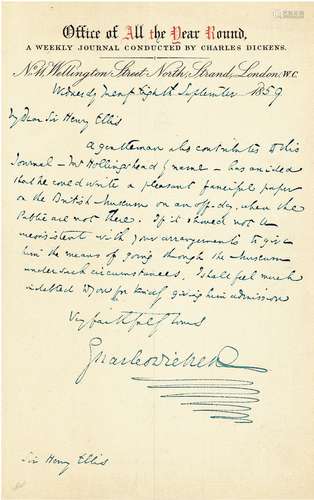 Office of All the Year Round,
A WEEKLY JOURNAL CONDUCTED BY CHARLES DICKENS.
Wellington Street North, Strand, London, W.C.
Wednesday Twenty Eighth September 1859
My Dear Sir Henry Ellis
A gentleman who contributes to this
Journal – Mr Hollingshead by name – has an idea
that he could write a pleasant fanciful paper
on the British Museum on an off-day, when the
Public are not there. If it should not be
inconsistent with your arrangements to give
him the means of going through the Museum
under such circumstances, I shall feel much
indebted to you for kindly giving him admission
Very faithfully Yours
Charles Dickens
Sir Henry Ellis